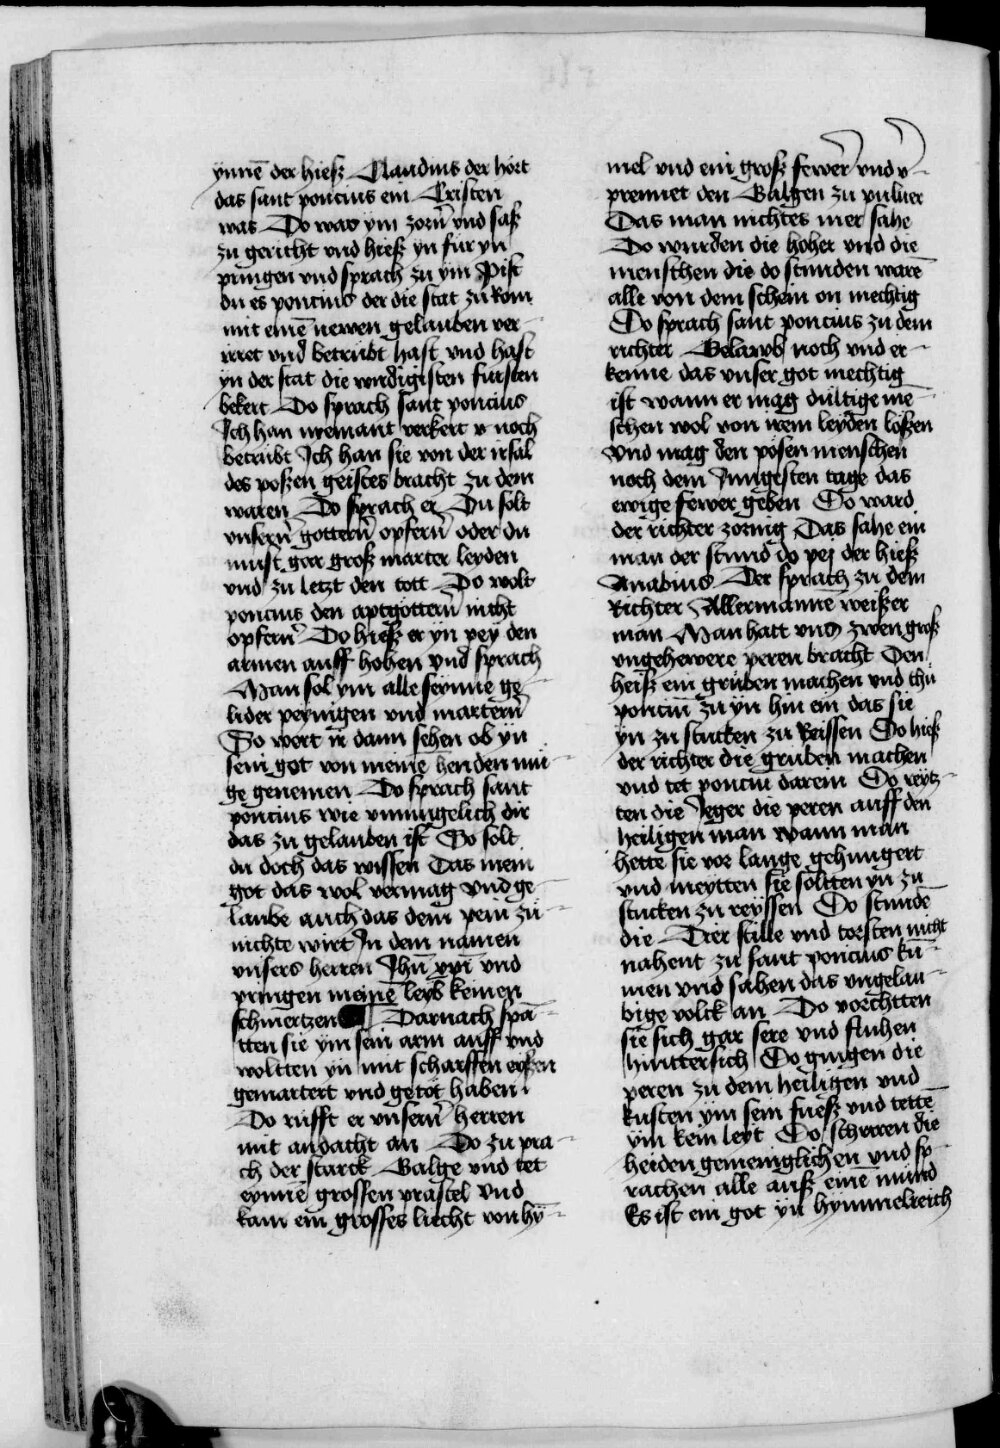 ynnē der hiesz Claudius der hort
das sant poncius ein Cristen
was Do was ym zorn vnd sasz
zu gericht vnd hiesz yn fur yn
pringen vnd sprach zu ym Pist
du es poncius der die stat zu Rom
mit einē newen gelauben ver-
irret vnd betrubt hast vnd hast
yn der stat die wirdigisten fursten
bekert Do sprach sant poncius
Ich han nyemant verkert v noch
betrubt Ich han sie von der irsal
des poszen geistes bracht zu dem
waren Do sprach er Du solt
vnsern gottern opfern oder du
must gar grosz marter leyden
vnd zu letzt den tott Do wolt
poncius den aptgottern nicht
opfern Do hiesz er yn pey den
armen auff hohen vnd sprach
Man sol ym alle seynne ge-
lider peynigen vnd martern
So wert ir dann sehen ob yn
sein got von meinē henden mü-
ge genemen Do sprach sant
poncius wie vnmugelich dir
das zu gelauben ist So solt
du doch das wissen Das mein
got das wol vermag vnd ge-
laube auch das dein pein zü-
nichte wirt In dem namen
vnsers herren Ihū xpī vnd
pringen meinē leyb keinen
schmertzen Darnach spā-
tten sie ym sein arm auff vnd
woltten yn mit scharffen
gemartert vnd getöt haben
Do rüfft er vnsern herren
mit andacht an Do zu pra-
ch der starck Balge vnd tet
eynnē grossen prastel vnd
kam ein grosses liecht von hÿ-
mel vnd ein grosz fewer vnd v-
prennet den Balgen zu puluer
Das man nichtes mer sahe
Do wurden die hoher vnd die
menschen die do stunden warē
alle von dem schein on mechtig
Do sprach sant poncius zu dem
richter Gelawb noch vnd er-
kenne das vnser got mechtig
ist wann er mag dultige me-
schen wol von irem leyden löszen
vnd mag den pösen menschen
noch dem Jungesten tage das
ewige fewer geben Do ward
der richter zornig Das sahe ein
man der stund do pey der hiesz
Anabius Der sprach zu dem
Richter Allermannē weiszer
man Man hatt vns zwen grosz
vngehewere peren bracht Den
heisz ein gruben machen vnd thu
poncin zu yn hin ein das sie
yn zu stucken zu Reissen Do hiesz
der richter die gruben machen
vnd tet poncin darein Do reytz-
ten die Jeger die peren auff den
heiligen man wann man
hette sie vor lange gehungert
vnd meytten sie soltten yn zu
stucken zu reyssen Do stundē
die Tier stille vnd torsten nicht
nahent zu sant poncius kü-
men vnd sahen das vngelau-
bige volck an Do vorchtten
sie sich gar sere vnd fluhen
hintter sich Do gingen die
peren zu dem heiligen vnd
kusten ym sein fuesz vnd tettē
ym kein leyt Do schrren die
heiden gemeniglichen vnd sp-
rachen alle ausz einē mund
Es ist ein got yn hymmelreich